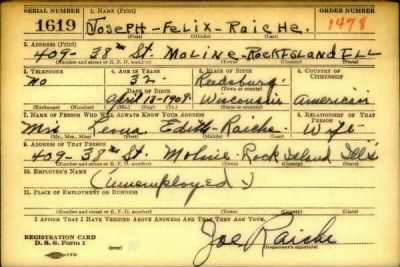 SERIAL NUMBER 1. NAME (Print) ORDER NUMBER
1619 JOSEPH-FELIX-RAICHE. 1478
(First) (Middle) (Last)
2. ADDRESS (Print)
409- 38th St. MOLINE-ROCKISLAND ILL
(Number and street or R. F. D. number) (Town) (County) (State)
3. TELEPHONE 4. AGE IN YEARS 5. PLACE OF BIRTH 6. COUNTRY OF CITIZENSHIP
No 32. Reedsburg.
DATE OF BIRTH (Town or county)
April 13-1909. Wisconsin american
(Exchange) (Number) (Mo.) (Day) (Yr.) (State or country)
7. NAME OF PERSON WHO WILL ALWAYS KNOW YOUR ADDRESS 8. RELATIONSHIP OF THAT PERSON
Mrs Edith-Raiche Wife
(Mr., Mrs., Miss) (First) (Middle) (Last)
9. ADDRESS OF THAT PERSON
409- 38th St. Moline Rock Island
(Number and street or R. F. D. number) (Town) (County) (State)
10. EMPLOYER'S NAME
(unemployed)
11. PLACE OF EMPLOYMENT OR BUSINESS
(Number and street or R. F. D. number) (Town) (County) (State)
I AFFIRM THAT I HAVE VERIFIED ABOVE ANSWERS AND THAT THEY ARE TRUE.
REGISTRATION CARD
D. S. S. Form 1
Joe Raiche
(Registrant's signature)